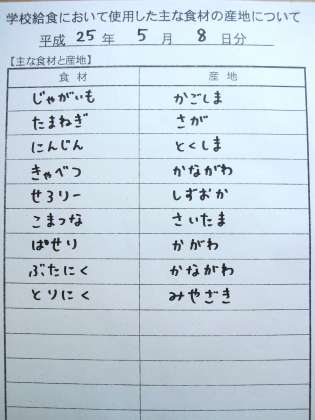 学校給食において使用した主な食材の産地について
平成 25 年 5 月 8 日分
【主な食材と産地】
食材 産地
じゃがいも かごしま
たまねぎ さが
にんじん とくしま
きゃべつ かながわ
せろりー しずおか
こまつな さいたま
ぱせり かがわ
ぶたにく かながわ
とりにく みやざき